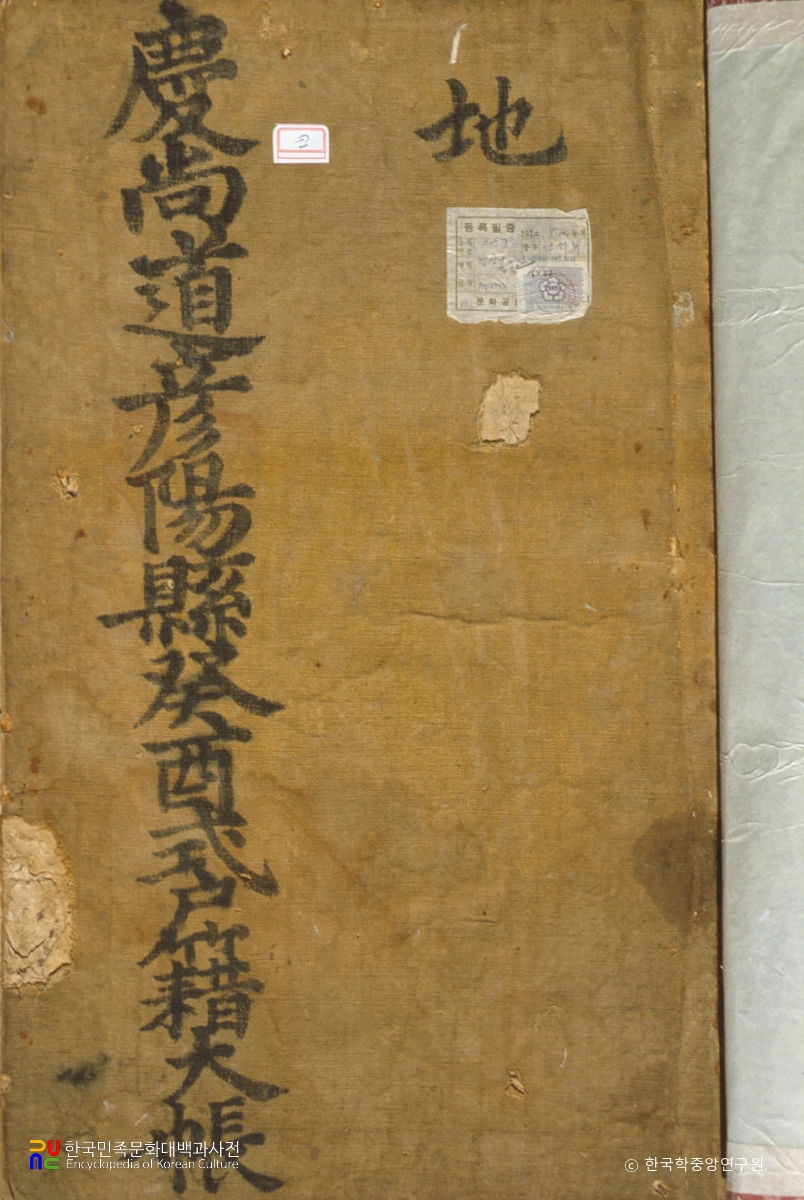 地
慶尚道彦陽縣癸酉式戶籍大帳
등록필증
문화공
한국민족문화대백과사전
Encyclopedia of Korean Culture
ⓒ 한국학중앙연구원